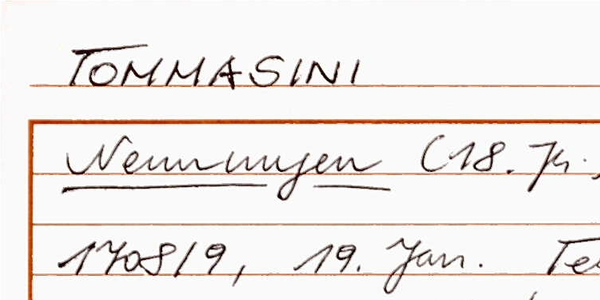 TOMMASINI
Nennungen (18. Jh.,
1708/9, 19. Jan. Te